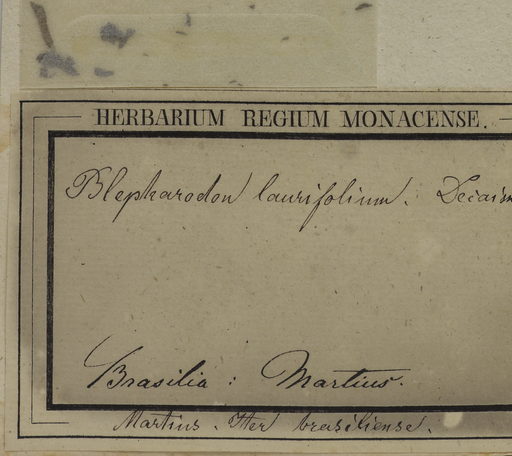 HERBARIUM REGIUM MONACENSE.
Blepharodon laurifolium. Decaisn
Brasilia: Martius.
Martius. Iter brasiliense.